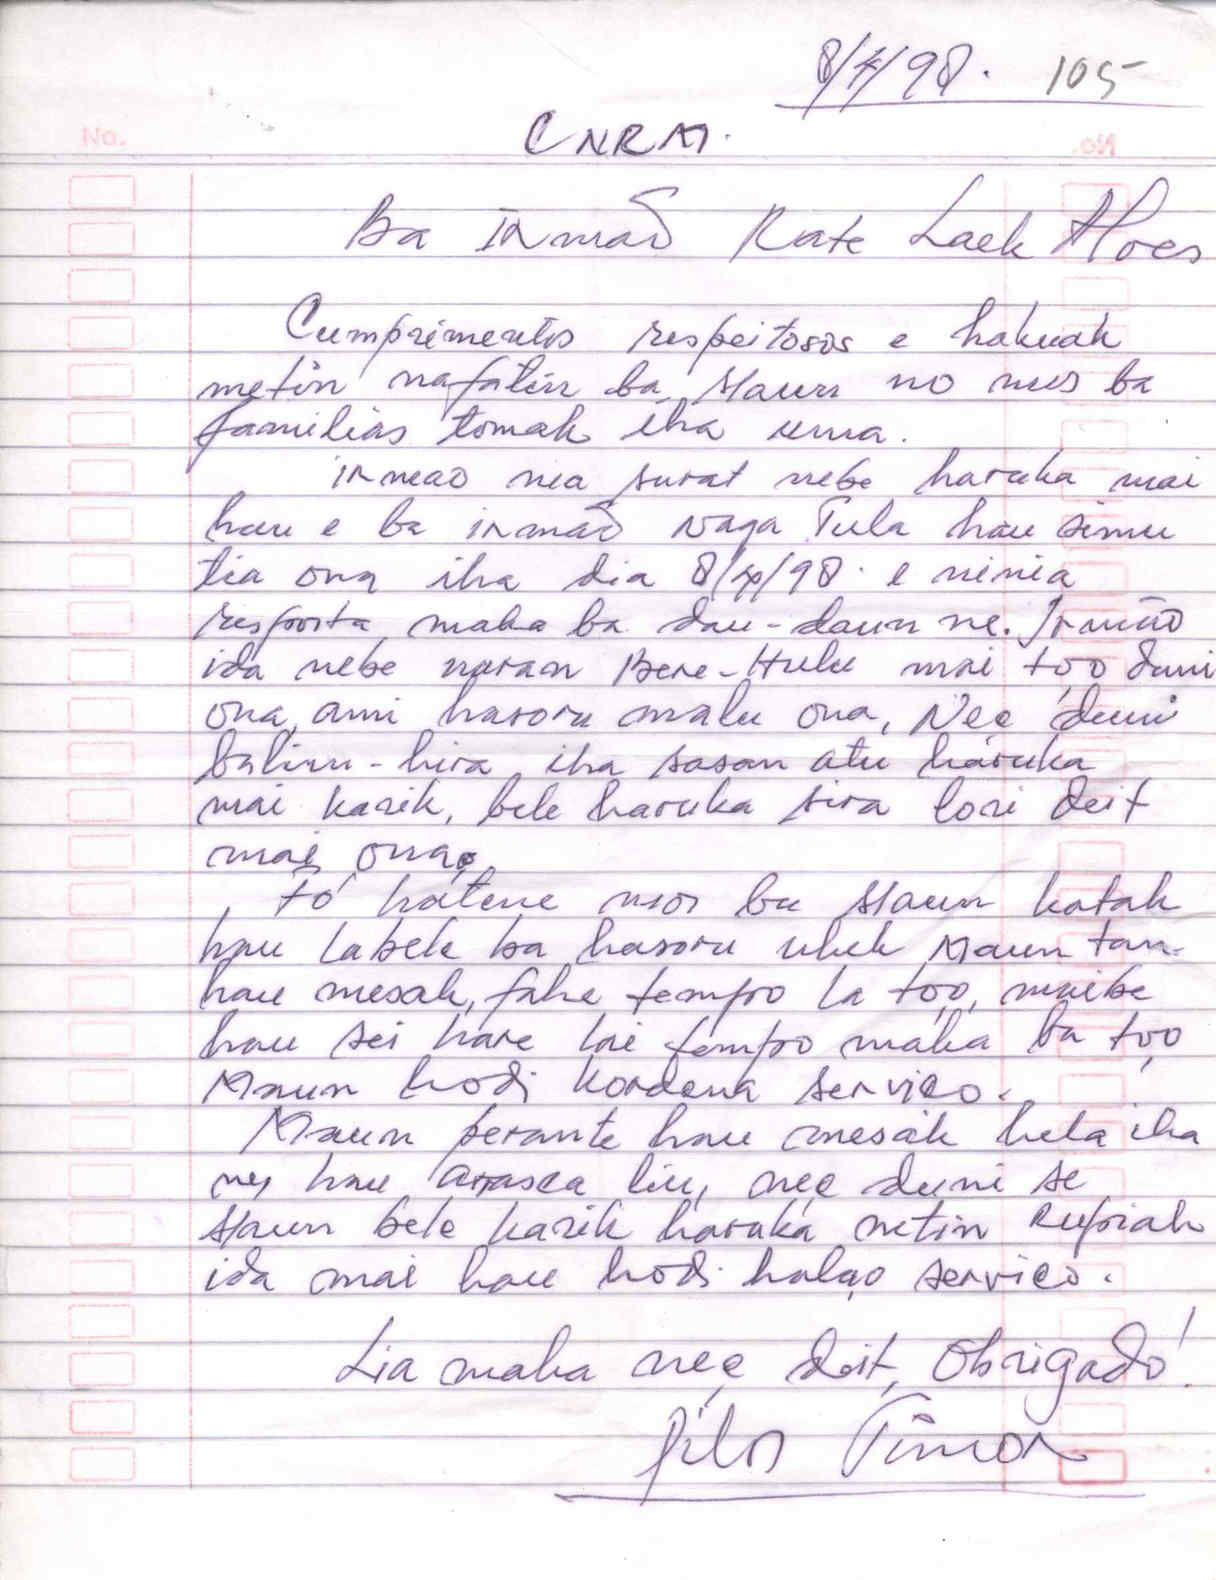 8/4/98. 105
CNRM.
No.
No.
Ba Irmaõ Kate Laek Aloes
Cumprimentos respeitosos e hakuak
metin nafatin ba Maun no mos ba
familias tomak iha uma.
irmao nia surat nebe haruka mai
hau e ba irmaõ Naga Tula hau simu
tia ona iha dia 8/4/98. e ninia
resposta maka ba dau-daun ne. Irmão
ida nebe naran Bere-Hulu mai tóo duni
ona, ami hasoru malu ona, Nee duni
balun-hira iha sasan atu haruka
mai karik, bele haruka sira lori deit
mai ona.
Fó hatene mos ba Maun katak
hau labele ba hasoru uluk Maun tan
hau mesak, fahe tempo la tóo, maibe
hau sei hare lai tempo maka ba tóo
Maun hodi kordena serviço.
Maun perante hau mesák hela iha
ne, hau arasca liu, nee duni se
Maun bele karik haruka netin Rupiah
ida mai hau hodi halao serviço.
Lia maka nee deit, Obrigadó!
Pilos Timor